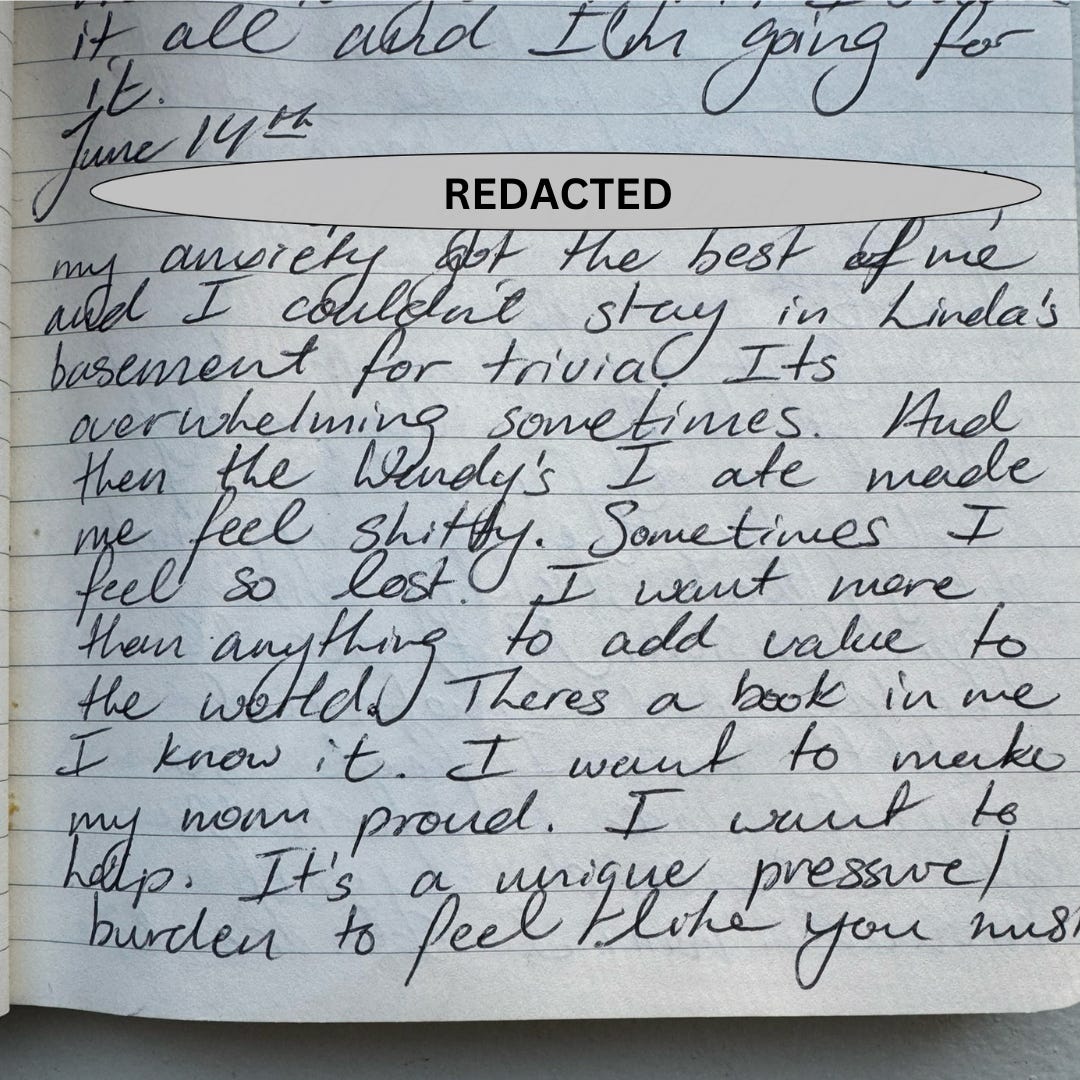 it all and I'm going for
it.
June 14th
REDACTED
my anxiety got the best of me
and I couldn't stay in Linda's
basement for trivia. Its
overwhelming sometimes. And
then the Wendy's I ate made
me feel shitty. Sometimes I
feel so lost. I want more
than anything to add value to
the world. Theres a book in me
I know it. I want to make
my mom proud. I want to
help. It's a unique pressure/
burden to feel like you mus